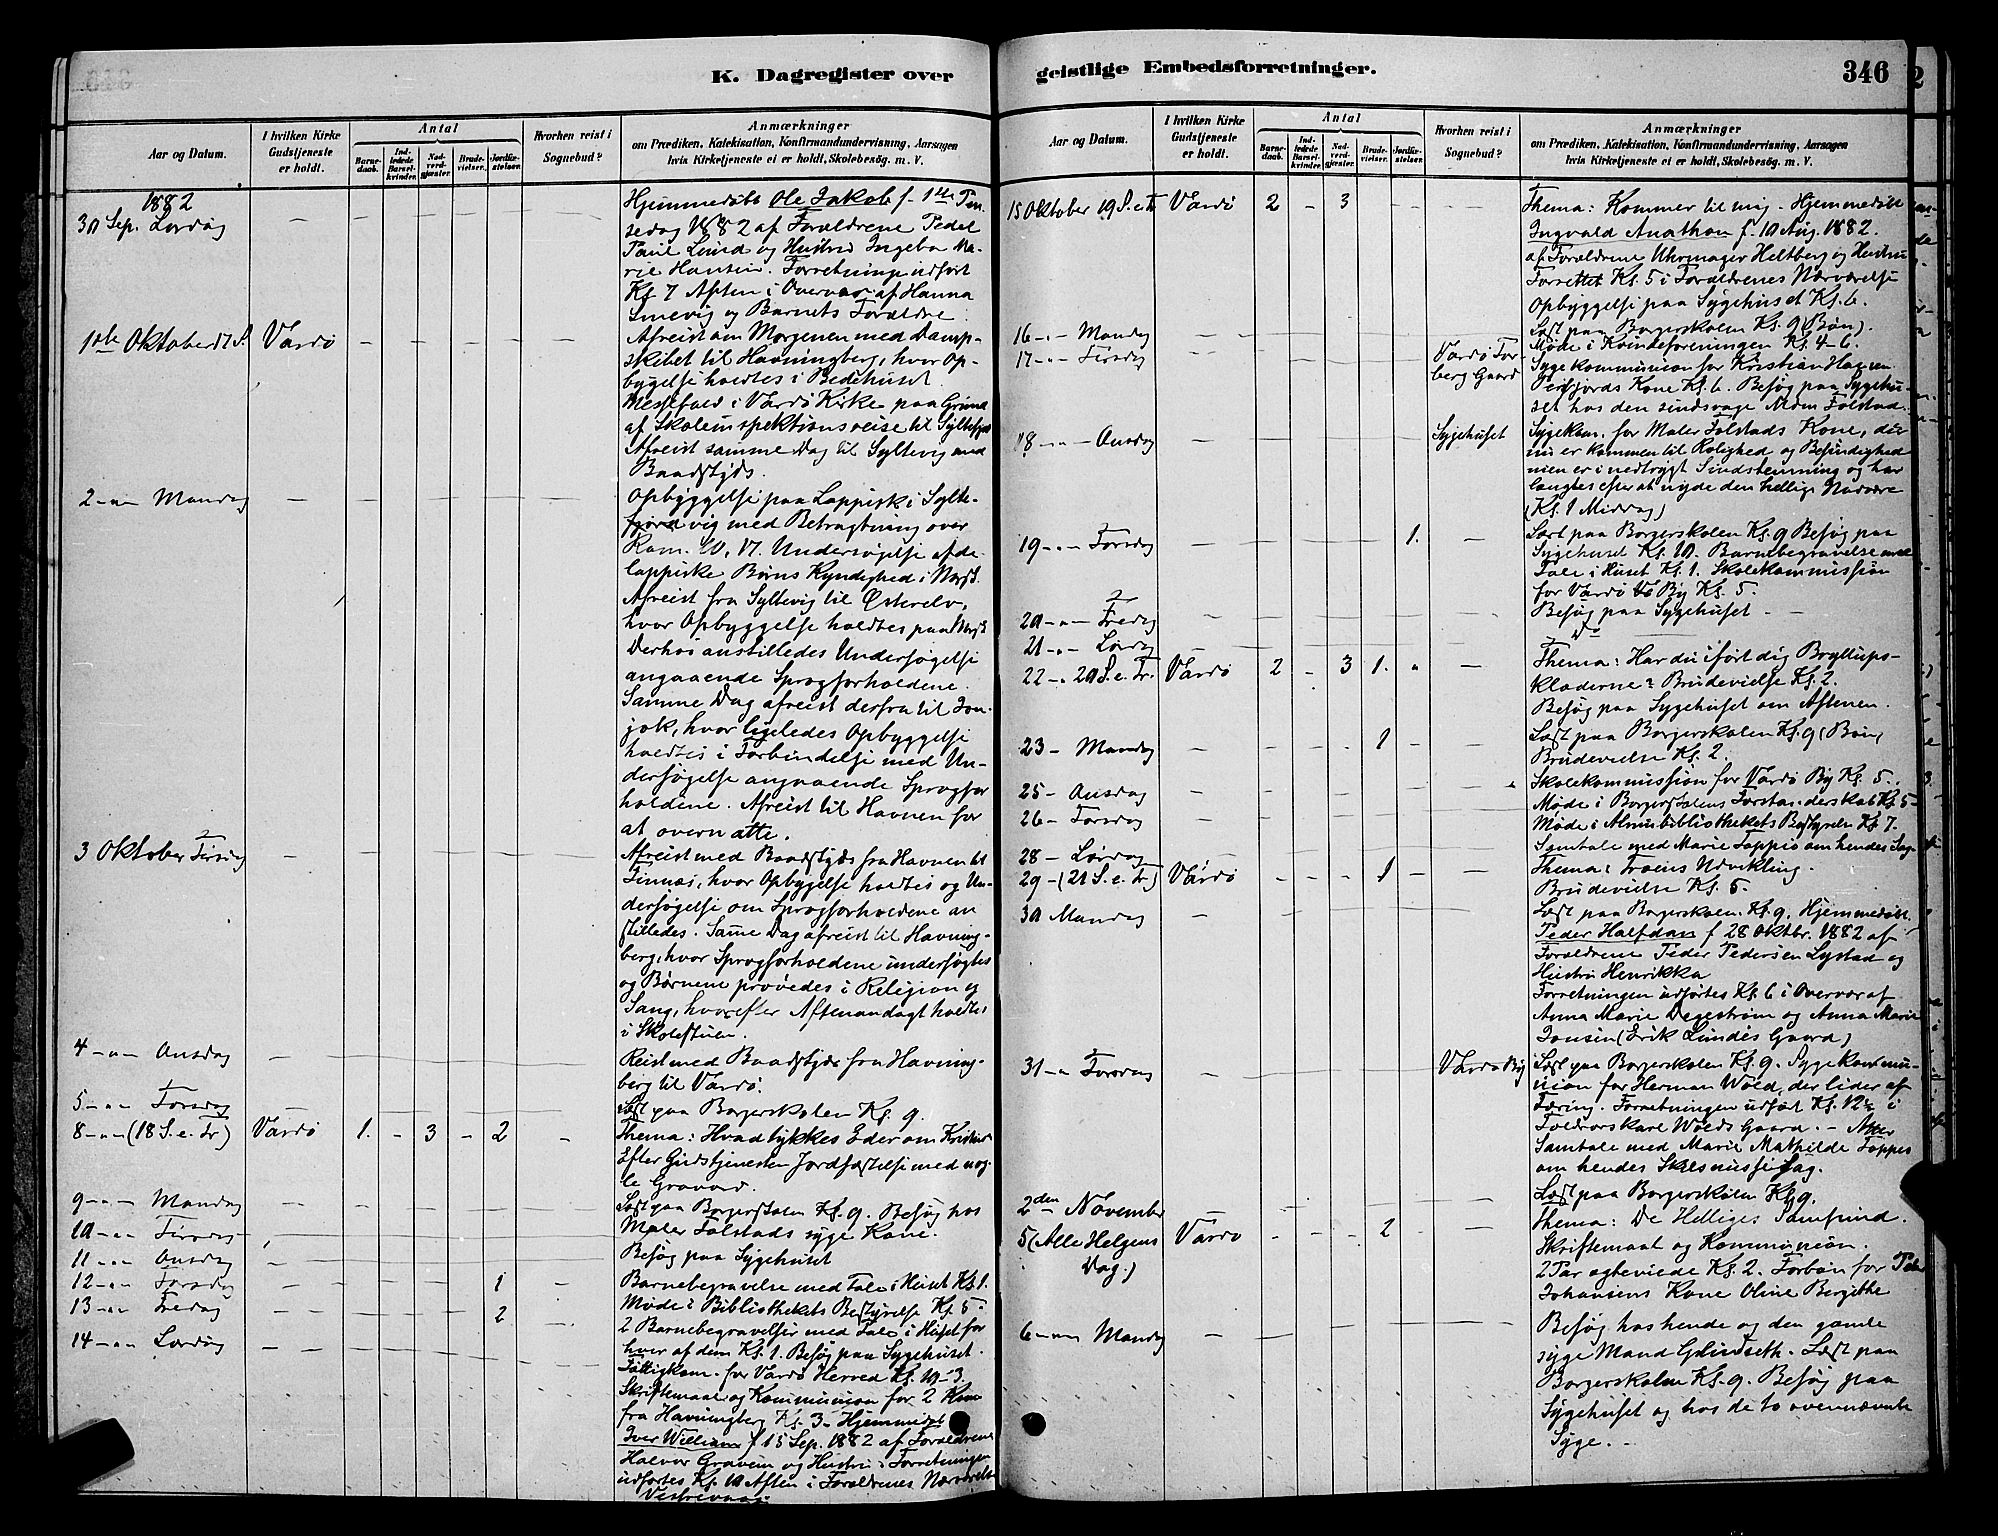 K. Dagregister over
geistlige Embedsforretninger.
346
Aar og Datum.
I hvilken Kirke
Gudstjeneste
er holdt.
Antal
Barne-
daab.
Ind-
ledede
Barsel-
kvinder.
Nad-
verd-
gjæster.
Brude-
vielser.
Jordfæ-
stelser.
Hvorhen reist i
Sognebud?
Anmærkninger
om Prædiken, Katekisation, Konfirmandundervisning, Aarsagen
hvis Kirketjeneste ei er holdt, Skolebesög. m. V.
1882
30 Sep. Lørdag
Hjemmedøbt Ole Jakob f. 1ste Pin-
sedag 1882 af Forældrene Peder
Paul Lund og Hustru Ingeba Ma-
rie Hansen. Forretning udført
Kl 7 Aften i Overvær af Hanna
Smevig og Barnets Forældre
1ste Oktober 17 S. Vardø
Afreist om Morgenen med Damp-
skibet til Havningberg, hvor Op-
bygelse holdtes i Bedehuset
Messefald i Vardø Kirke paa Grund
af Skoleinspektionsreise til Syltefjord
Afreist samme Dag til Syltevig med
Baadskyds.
2 -"- Mandag
Opbyggelse paa Lappisk i Sylte-
vig med Betragtning over
Rom. 10, 17. Undersøgelse af de
lappiske Børns Kyndighed i Norsk.
Afreist fra Syltevig til Østerelv,
hvor Opbyggelse holdtes paa Norsk
Derhos anstilledes Undersøgelse
angaaende Sprogforholdene.
Samme Dag afreist derfra til Jon-
jok, hvor ligeledes Opbyggelse
holdtes i Forbindelse med Un-
dersøgelse angaaende Sprogfor
holdene. Afreist til Havnen for
at overnatte.
3 Oktober Tirsdag
Afreist med Baadskyds fra Havnen til
Finnæs, hvor Opbygelse holdtes og Un-
dersøgelse om Sprogforholdene an
stilledes. Same Dag afreist til Havning-
berg, hvor Sprogforholdene undersøgtes
og Børnene prøvedes i Religion og
Sang, hvorefter Aftenandagt holdtes
i Skolestuen.
4 -"- Onsdag
Reist med Baadskyds fra Havning-
berg til Vardø.
5 -"- Torsdag
Læst paa Borgerskolen Kl. 9.
8 -"- (18 S. e. Tr) Vardø 1. - 3 - 2 -
Thema: Hvad tykkes Eder om Kristus
Efter Gudstjenesten Jordfæstelse med nog-
le Gravord.
9 -"- Mandag
Læst paa Borgerskolen Kl. 9. Besøg hos
Maler Folstads syge Kone.
10 -"- Tirsdag
Besøg paa Sygehuset
11 -"- Onsdag
12 -"- Torsdag 1
Barnebegravelse med Tale i Huset Kl 1.
Møde i Bibliothekets Bestyrelse Kl. 5 -
13 -"- Fredag 2
2 Barnebegravelser med Tale i Huset for
hver af dem Kl. 1. Besøg paa Sygehuset.
14 -"- Lørdag
Fattigkom. for Vardø Herred Kl. 10-3.
Skriftemaal og Kommunion for 2 Kon
fra Havningberg Kl. 3 - Hjemmedøbt
Iver William f 15 Sep. 1882 af Forældrene
Halvor Gravem og Hustru - Forretningen
udførtes Kl. 10 Aften i Forældrenes Nærværelse
15 Oktober 19 S. e. Tr Vardø 2 - 3
Thema: Kommer til mig. Hjemmedøbt
Ingvald Anathon f. 10 Aug. 1882.
af Forældrene Uhrmager Heltberg og Hustru
Forrettet Kl. 5 i Forældrenes Nærværelse
Opbyggelse paa Sygehuset Kl. 6.
16 -"- Mandag
Læst paa Borgerskolen Kl. 9 (Bøn).
Møde i Kvindeforeningen Kl. 4-6.
17 -"- Tirsdag
Vardø Tor-
berg Gaard
Sygekommunion for Kristian
Persfjords Kone Kl. 6. Besøg paa Sygehu-
set hos den sindsvage Mdm Folstad.
18 -"- Onsdag Sygehuset
Sygekom. for Maler Folstads Kone, der
nu er kommen til Rolighed og Besindighed
men er i nedtrygt Sindstemning og har
længtes efter at nyde den hellige Nadvere
(Kl. 1 Middag)
19 -"- Torsdag 1.
Læst paa Borgerskolen Kl. 9 Besøg paa
Sygehuset Kl. 10. Barnebegravelse med
Tale i Huset Kl. 1. Skolekommission
for Vardø By Kl. 5.
20 -"- Fredag
Besøg paa Sygehuset -
21 -"- Lørdag
Do
22 -" 20 S. e. Tr. Vardø 2 - 3 1. "
Thema: Har du iført dig Bryllups-
klæderne? Brudevielse Kl. 2.
Besøg paa Sygehuset om Aftenen.
23 - Mandag 1
Læst paa Borgerskolen Kl. 9 (Bøn)
Brudevielse Kl. 2.
25 - Onsdag
Skolekommission for Vardø By Kl. 5.
Møde i Borgerskolens Forstanderskab Kl. 5
26 - Torsdag
Møde i Almubibliothekets Bestyrelse Kl 7.
28 - Lørdag
Samtale med Marie Foppes om hendes Sag
29 - (21 S. e. Tr) Vardø 1
Thema: Troens Udvikling.
Brudevielse Kl. 5.
30 Mandag
Læst paa Borgerskolen Kl. 9. Hjemmedøbt
Peder Halfdan f 28 Oktbr. 1882 af
Forældrene Peder Pedersen Lystad og
Hustru Henrikka
Forretningen udførtes Kl. 6 i Overvær af
Anna Marie Degerstrøm og Anna Marie
Jonsen (Erik Lundes Gaard)
31 -" Torsdag Vardø By
Læst paa Borgerskolen Kl. 9. Sygekommu-
nion for Herman Wold, der lider af
Tæring. Forretningen udført Kl. 12½ i
Toldroskarl Wolds Gaard. -
Samtale med Marie Mathilde Foppes
om hendes Skilsmissesag.
2den November
Læst paa Borgerskolen Kl 9.
5 (Alle Helgens
Dag.) Vardø 2
Thema: De Helliges Samfund.
Skriftemaal og Kommunion.
2 Par ægteviede Kl. 2. Forbøn for Peder
Johansens Kone Oline Bergithe
6 -"- Mandag
Besøg hos hende og den gamle
syge Mand Glindseth. Læst paa
Borgerskolen Kl. 9. Besøg paa
Sygehuset og hos de to ovennævnte
Syge. -